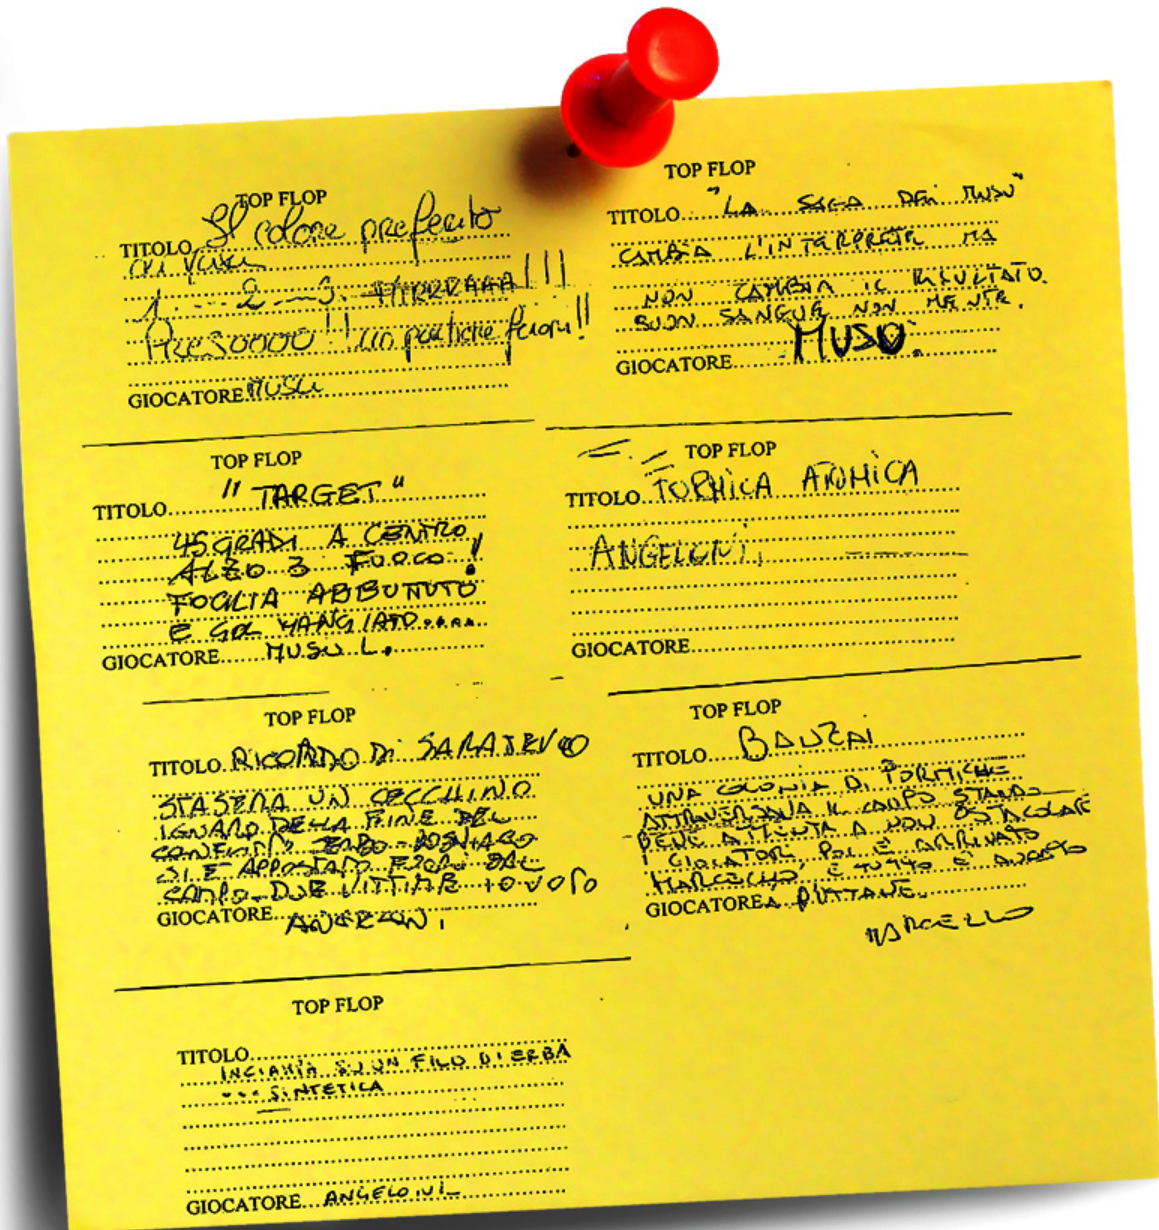 TOP FLOP
TITOLO Il colore preferito
di Musu
1 ... 2 ... 3. HURRRAAA!!!
PreSoooo!! un portiere fuori!!
GIOCATORE MUSU
TOP FLOP
TITOLO "LA SAGA DEI MUSU"
CAMBIA L'INTERPRETE MA
NON CAMBIA IL RISULTATO.
BUON SANGUE NON MENTE.
GIOCATORE MUSU.
TOP FLOP
TITOLO "TARGET"
45 GRADI A CENTRO,
ALZO 3 FUOCO!
FOGLIA ABBUTTUTO
E GOL MANGIATO....
GIOCATORE MUSU L.
TOP FLOP
TITOLO FORMICA ATOMICA
ANGELONI
GIOCATORE
TOP FLOP
TITOLO RICORDO DI SARAJEVO
STASERA UN CECCHINO
IGNARO DELLA FINE DEL
CONFLITTO SERBO-BOSNIACO
SI È APPOSTATO FUORI DAL
CAMPO. DUE VITTIME
GIOCATORE ANGELONI
TOP FLOP
TITOLO BANZAI
UNA COLONIA DI FORMICHE
ATTRAVERSAVA IL CAMPO STANDO
BENE ATTENTA A NON OSTACOLARE
I GIOCATORI, POI È ARRIVATO
MARCELLO, E TUTTO È ANDATO
GIOCATORE A PUTTANE.
MARCELLO
TOP FLOP
TITOLO
INCIAMPA SU UN FILO DI ERBA
... SINTETICA
GIOCATORE ANGELONI